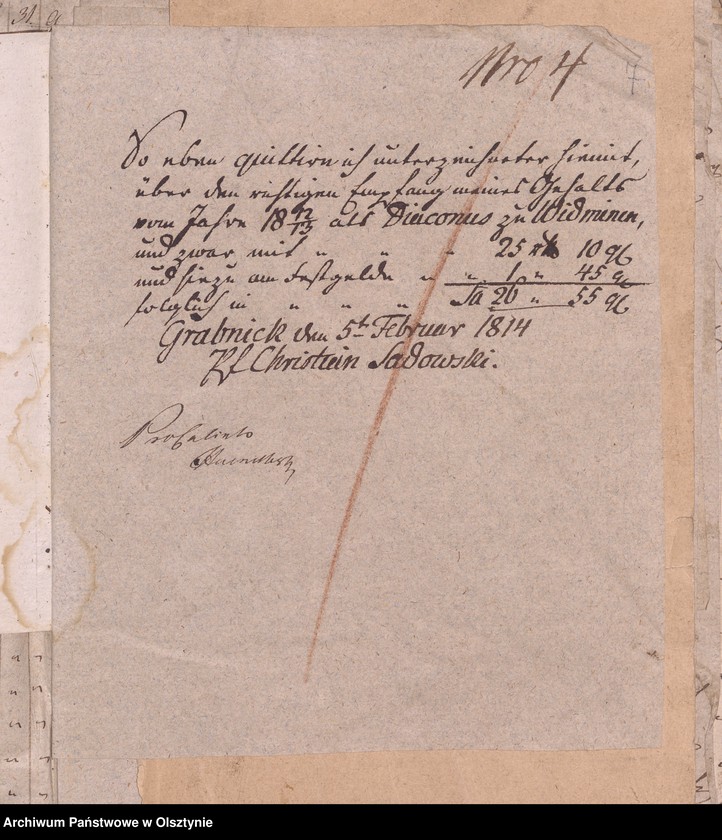 31
Nro 4
7
So eben quittire ich unterzeichneter hiemit,
über den richtigen Empfang meines Gehalts
vom Jahre 18 12/13 als Diaconus zu Widminnen,
und zwar mit " " " 25 rtl 10 gl
und hiezu an Festgelde " " 1 " 45 gl
folglich in " " " Sa 26 " 55 gl
Grabnick den 5t Februar 1814
Pf Christian Sadowski.
Archiwum Państwowe w Olsztynie